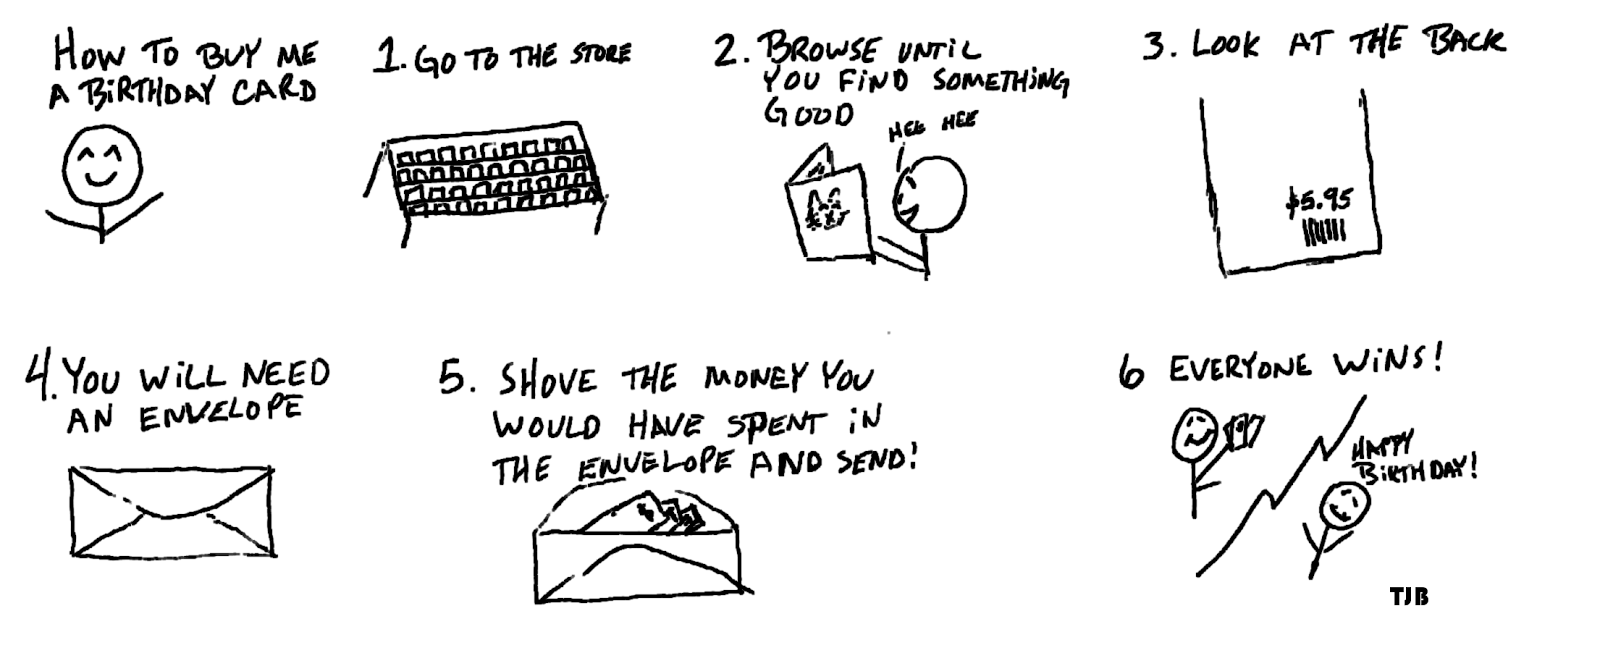 HOW TO BUY ME
A BIRTHDAY CARD
1. GO TO THE STORE
2. BROWSE UNTIL
YOU FIND SOMETHING
GOOD
HEE HEE
3. LOOK AT THE BACK
$5.95
4. YOU WILL NEED
AN ENVELOPE
5. SHOVE THE MONEY YOU
WOULD HAVE SPENT IN
THE ENVELOPE AND SEND!
6 EVERYONE WINS!
HAPPY
BIRTHDAY!
TJB